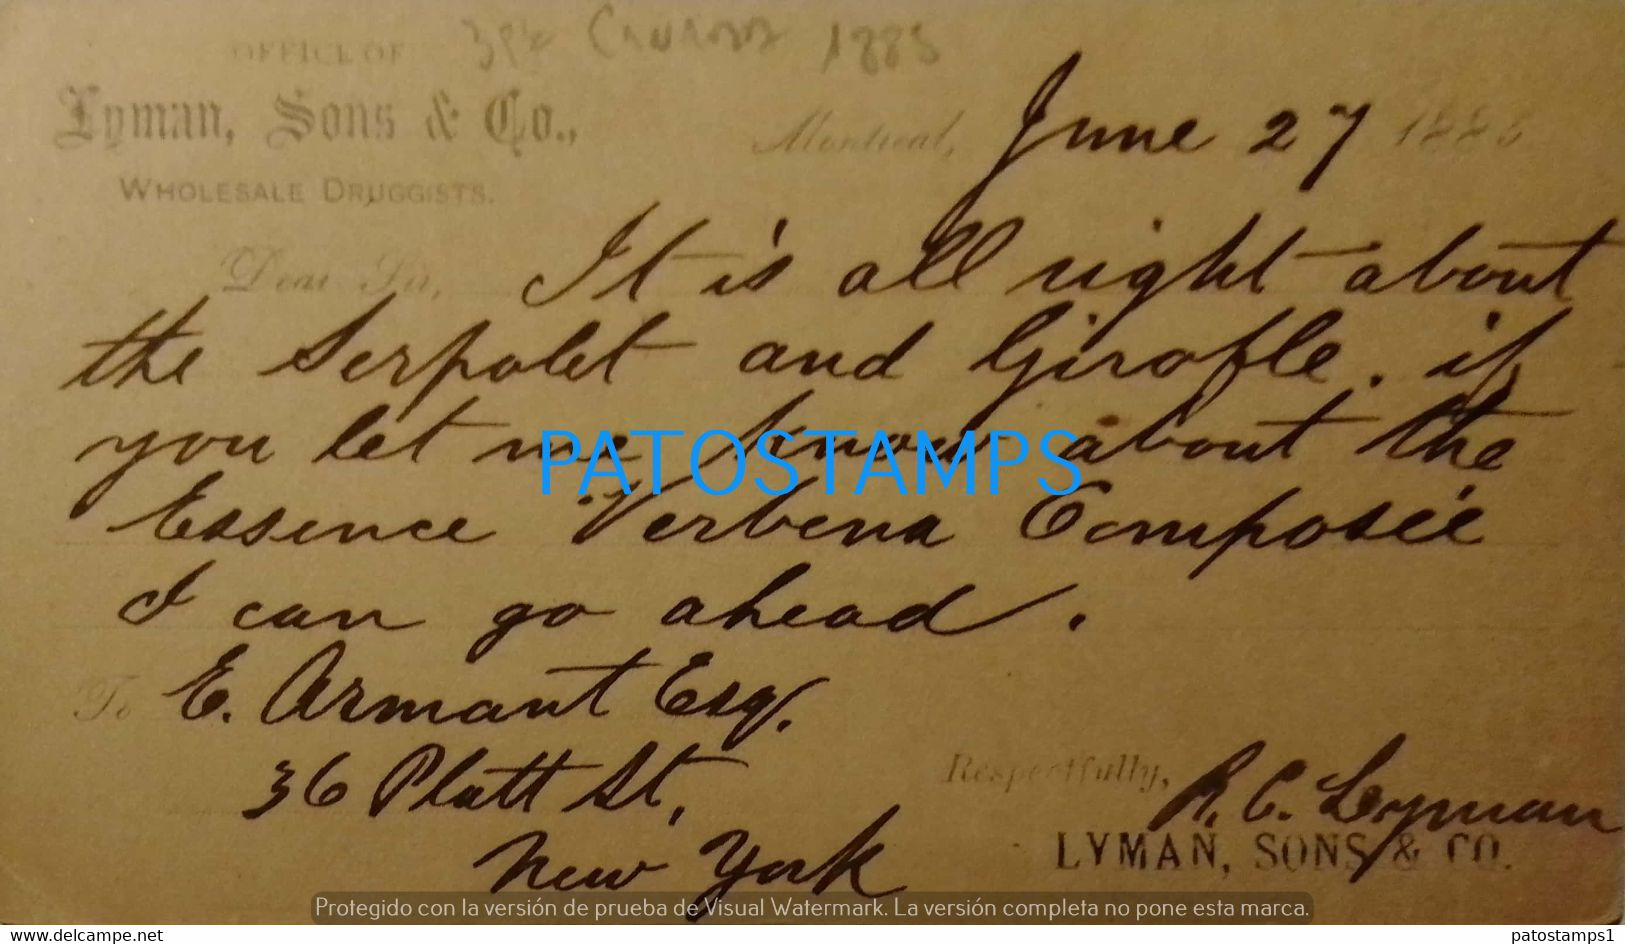 OFFICE OF 1885
Lyman, Sons & Co.,
WHOLESALE DRUGGISTS.
Montreal, June 27 188
Dear Sir, It is all right about
the Serpolet and Girofle. if
you let me know about the
Essence Verbena Composée
I can go ahead.
To E. Armant Esq.
36 Platt St.,
New York
Respectfully, R. C. Lyman
LYMAN, SONS & CO.
PATOSTAMPS
Protegido con la versión de prueba de Visual Watermark. La versión completa no pone esta marca.
www.delcampe.net
patostamps1